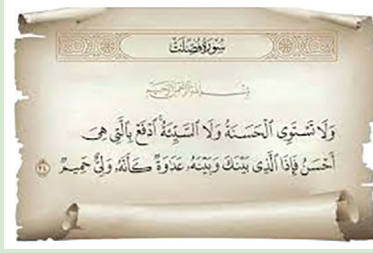 سُورَةُ فُصِّلَتْ
بِسْمِ اللَّهِ الرَّحْمَٰنِ الرَّحِيمِ
وَلَا تَسْتَوِي الْحَسَنَةُ وَلَا السَّيِّئَةُ ۚ ادْفَعْ بِالَّتِي هِيَ
أَحْسَنُ فَإِذَا الَّذِي بَيْنَكَ وَبَيْنَهُ عَدَاوَةٌ كَأَنَّهُ وَلِيٌّ حَمِيمٌ ٣٤